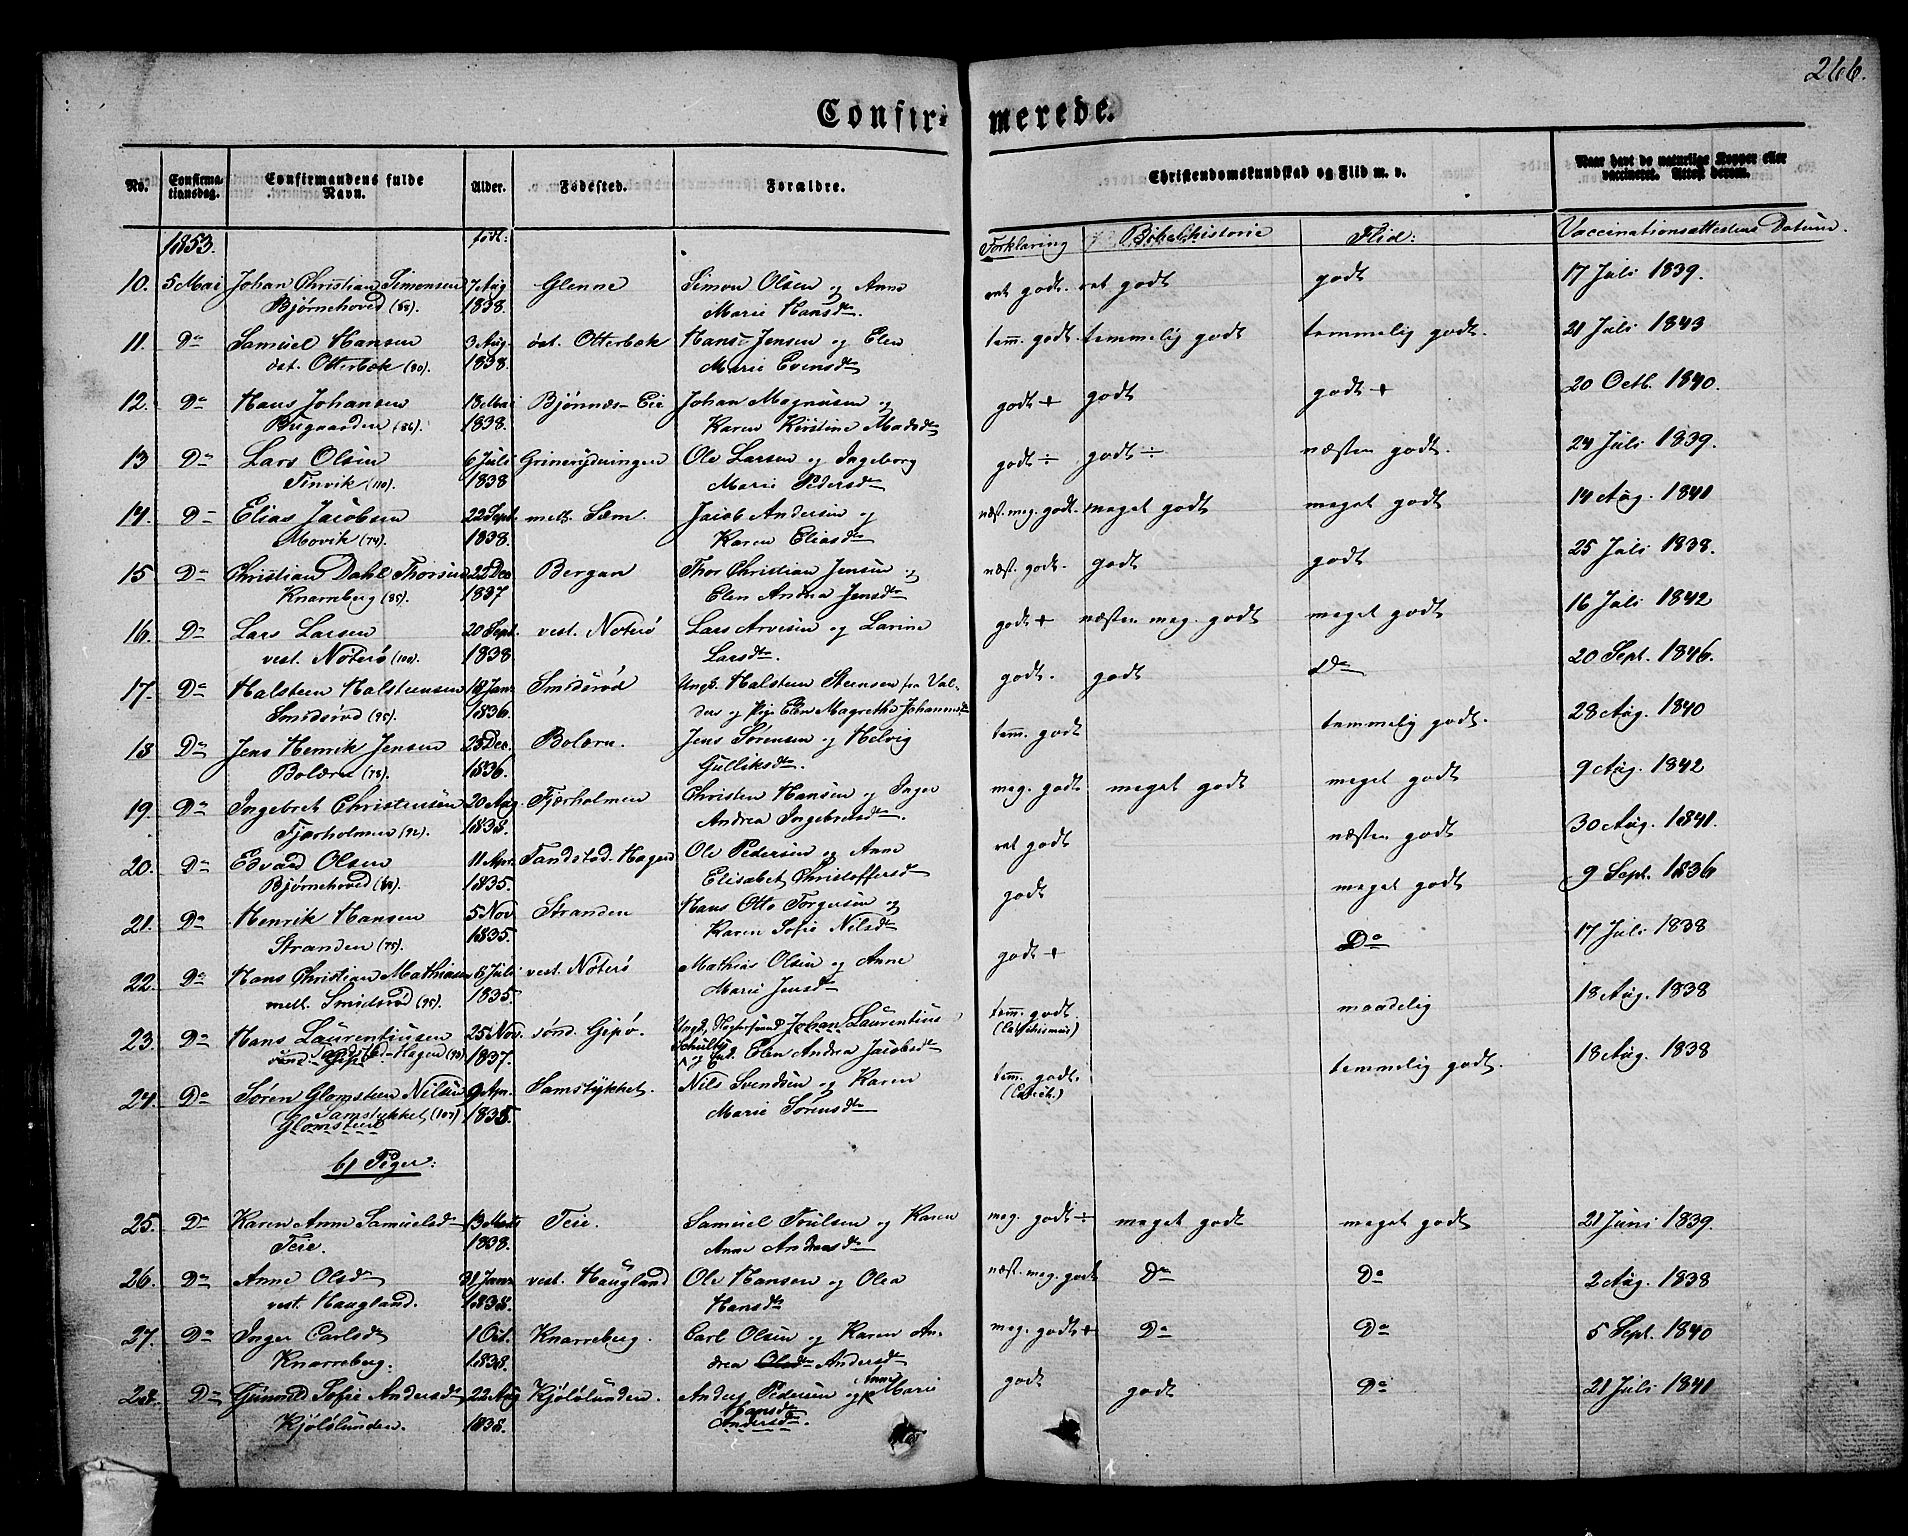 266.
Confir- merede.
No. Confirmationsdag. Confirmandens fulde Navn. Alder. Fødested. Forældre. Christendomskundskab og Flid m. v. Naar havt de naturlige Kopper eller vaccineret. Attest derom.
1853. født: Forklaring Bibelhistorie Flid: Vaccinationsattestens Datum.
10. 5 Mai Johan Christian Simonsen 7 Aug Glenne Simon Olsen og Anne ret godt. ret godt godt 17 Juli 1839.
Bjørnehoved (88). 1838. Marie Hansdtr.
11. Do Samuel Hansen 3 Aug. øst. Otterbæk Hans Jensen og Elen tem. godt. temmelig godt temmelig godt. 21 Juli 1843
øst. Otterbæk (80). 1838. Marie Evensdtr
12. Do Hans Johansen 13 Mai Bjønnæs-Eie Johan Magnusen og godt + godt godt + 20 Octb. 1840.
Buegaarden (86). 1838. Karen Kirstine Madsdtr
13 Do Lars Olsen 6 Juli Grinerydningen Ole Larsen og Ingeborg godt ÷ godt ÷ næsten godt. 24 Juli 1839.
Tinvik (110). 1838 Marie Pedersdtr
14. Do Elias Jacobsen 22 Sept. mell. Sæm. Jacob Andersen og næst. meg. godt. meget godt meget godt 14 Aug. 1841
Movik (74). 1838. Karen Eliasdtr
15 Do Christian Dahl Thorsen 22 Dec Bergan Thor Christian Jensen og næst. godt. godt godt 25 Juli 1838.
Knarreberg (85). 1837 Elen Andrea Jensdtr
16. Do Lars Larsen 20 Sept. vest. Nøterø Lars Arvesen og Larine godt + næsten meg. godt meget godt 16 Juli 1842
vest. Nøterø (100). 1838 Larsdtr.
17. Do Halsteen Halsteensen 18 Jan. Smidsrød Ungk. Halsteen Steensen fra Val- godt. godt Do 20 Sept. 1846.
Smidsrød (95). 1836. ders og Pige Elen Magrethe Johannesdtr
18 Do Jens Henrik Jensen 28 Dec. Bolærn. Jens Sørensen og Helvig tem. godt temmelig godt. 28 Aug. 1840
Bolærn (78). 1836. Gulliksdtr.
19. Do Ingebret Christensen 20 Aug Fjærholmen Christen Hansen og Inger meg. godt meget godt meget godt 9 Aug. 1842
Fjærholmen (92). 1838. Andrea Ingebretsdtr.
20. Do Edvard Olsen 11 Apr. Tandstød-Hagen Ole Pedersen og Anne ret godt næsten godt 30 Aug. 1841.
Bjørnehoved (88). 1835. Elisabet Christoffersdtr
21. Do Henrik Hansen 5 Nov Stranden Hans Otto Torgersen og godt meget godt 9 Sept. 1836
Stranden (75). 1835. Karen Sofie Nilsdtr
22. Do Hans Christian Mathiasen 8 Juli vest. Nøterø Mathias Olsen og Anne godt + Do 17 Juli 1838
mell. Smidsrød (95). 1835. Marie Jensdtr
23. Do Hans Laurentiusen 25 Nov. sønd. Gipø. Ungk. Johan Laurentius tem. godt. maadelig 18 Aug. 1838
Tandstød-Hagen 1837. Schultz og Enk. Elen Andrea Jacobsdtr (Catechismus)
24. Do Søren Glomsteen Nilsen 9 Apr. Samstykket. Nils Svendsen og Karen tem. godt. temmelig godt. 18 Aug. 1838
Samstykket (107) 1838. Marie Sørensdtr (Catech.)
Glomsteen
b) Piger:
25. Do Karen Anne Samuelsdtr 13 Marts Teie. Samuel Trulsen og Karen meg. godt ÷ meget godt meget godt 21 Juni 1839.
Teie. 1838. Anne Andreasdtr
26. Do Anne Olsdtr 31 Jan. vest. Haugland Ole Hansen og Olea næst. meg. godt Do Do 2 Aug. 1838
vest. Haugland. 1838. Hansdtr
27. Do Inger Carlsdtr 1 Oct. Knarreberg. Carl Olsen og Karen An- meg. godt + Do Do 5 Sept. 1840
Knarreberg. 1838. drea Olsdtr Andersdtr
28. Do Gunnild Sofie Andersdtr 22 Aug Kjølølunden. Anders Pedersen og Anne Marie godt godt Do 21 Juli 1841
Kjølølunden. 1838. Hansdtr
Andersdtr.